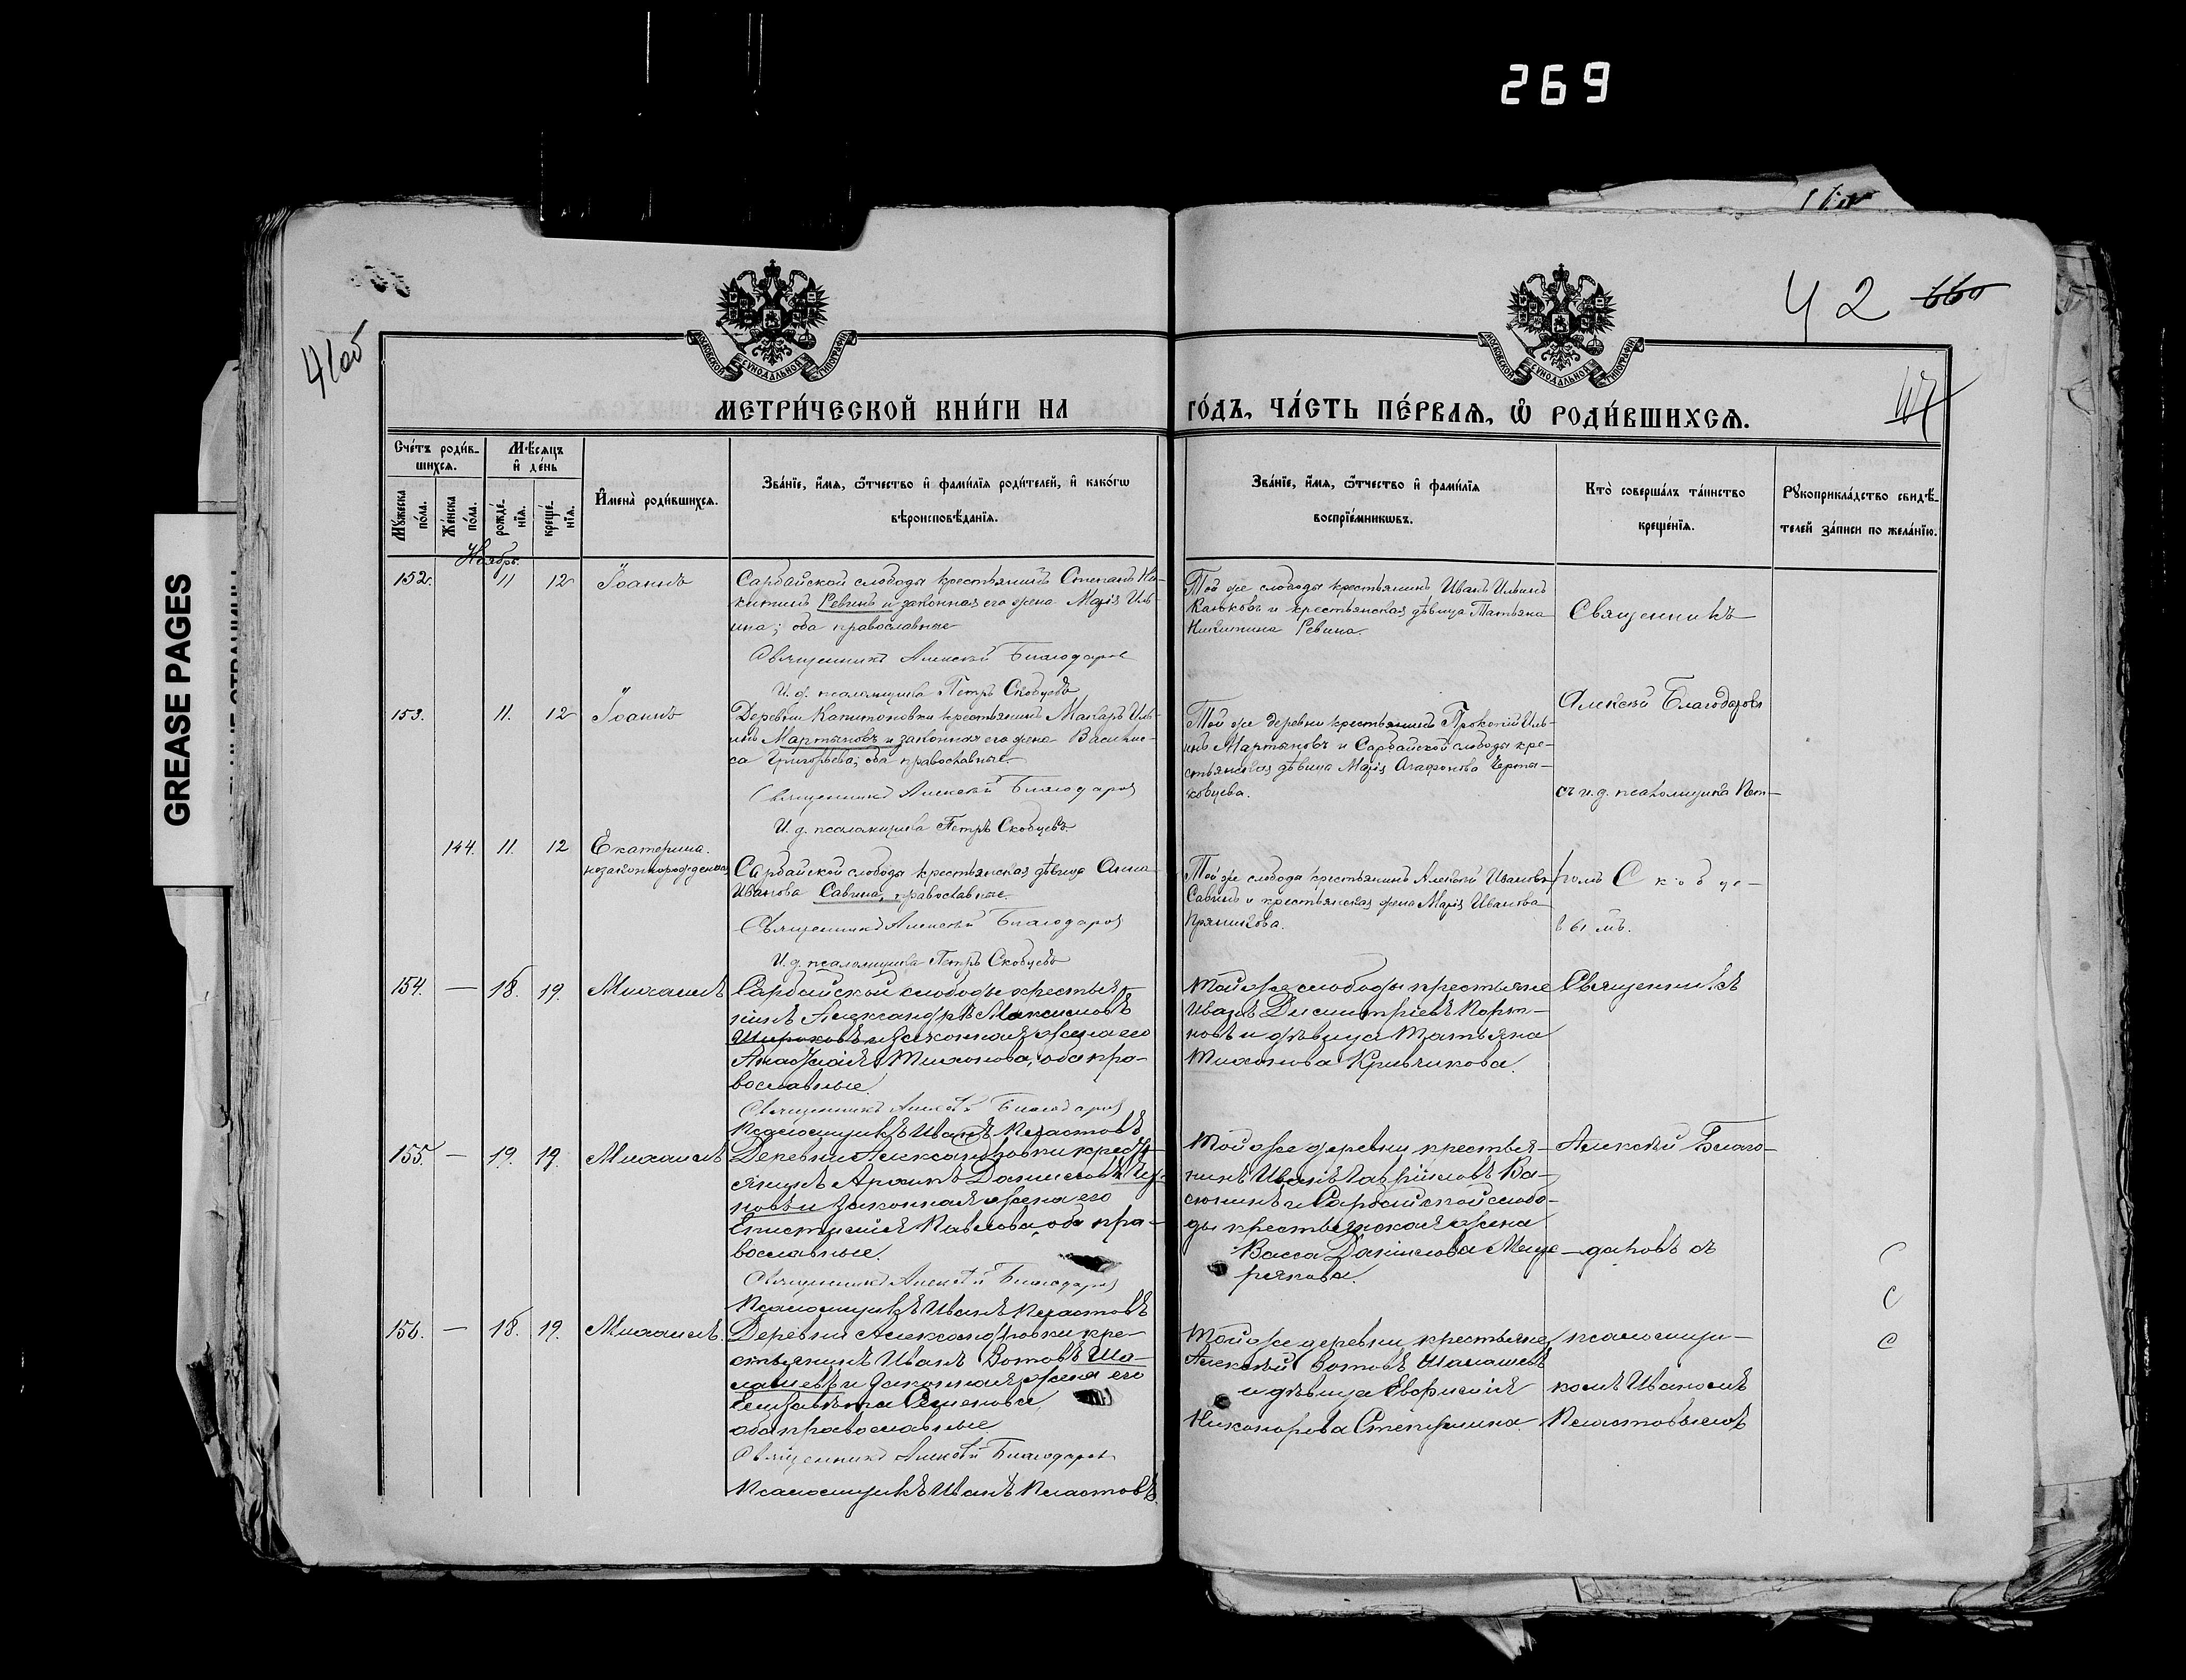 269
GREASE PAGES
41об
42
660
МОСКОВСКОЙ СУНОДАЛЬНОЙ ТИПОГРАФІИ
МОСКОВСКОЙ СУНОДАЛЬНОЙ ТИПОГРАФІИ
МЕТРИ́ЧЕСКОЙ КНИ́ГИ НА
ГО́ДЪ, ЧА́СТЬ ПЕ́РВАЯ, Ѡ РОДИ́ВШИХСЯ.
Сче́тъ роди́в-
шихся.
Мѣсяцъ
и де́нь
Му́жеска
по́ла.
Же́нска
по́ла.
рожде́-
нїя.
креще́-
нїя.
Имена̀ роди́вшихся.
Зва́нїе, и́мя, ѻ́тчество и фами́лїя роди́телей, и како́гѡ
вѣроисповѣ́данїя.
Зва́нїе, и́мя, ѻ́тчество и фами́лїя
воспрїе́мникѡвъ.
Кто̀ соверша́лъ та́инство
креще́нїя.
Рукоприкла́дство свидѣ́-
телей за́писи по жела́нїю.
Ноябрь.
152. 11 12 Іоаннъ
Сарбайской слободы крестьянинъ Степанъ Ни-
китинъ Ревинъ и законная его жена Марія Иль-
ина; оба православные
Священникъ Алексѣй Благодаров
И. д. псаломщика Петръ Скобцевъ
Той же слободы крестьянинъ Иванъ Ильинъ
Канюковъ и крестьянская дѣвица Татьяна
Никитина Ревина.
Священникъ
Алексѣй Благодаровъ
съ и. д. псаломщика Пет-
153. 11. 12 Іоаннъ
Деревни Капитоновки крестьянинъ Макаръ Иль-
инъ Мартыновъ и законная его жена Василис-
са Григорьева; оба православные.
Священникъ Алексѣй Благодаров
И. д. псаломщика Петръ Скобцевъ
Той же деревни крестьянинъ Прокопій Иль-
инъ Мартыновъ и Сарбайской слободы кре-
стьянская дѣвица Марія Агафонова Черта-
ковцева.
144. 11. 12 Екатерина.
незаконнорожденная
Сарбайской слободы крестьянская дѣвица Анна
Иванова Савина, православные.
Священникъ Алексѣй Благодаров
И. д. псаломщика Петръ Скобцевъ
Той же слободы крестьянинъ Алексѣй Ивановъ
Савинъ и крестьянская жена Марія Иванова
Пряникова.
ромъ Скобце-
вымъ.
154. — 18. 19. Михаилъ
Сарбайской слободы крестья-
нинъ Александръ Максимовъ
Широковъ и законная жена его
Анафолія Тихонова, оба пра-
вославные.
Священникъ Алексѣй Благодаров
Псаломщикъ Иванъ Пластовъ
Той же слободы крестьяне
Иванъ Димитріевъ Порт-
новъ и дѣвица Татьяна
Тихонова Кривчикова.
Священникъ
155. — 19. 19. Михаилъ
Деревни Александровки кресть-
янинъ Архипъ Даниловъ
новъ и законная жена его
Епистимія Павлова, оба пра-
вославные.
Священникъ Алексѣй Благодаров
Псаломщикъ Иванъ Пластовъ
Той же деревни крестья-
нинъ Иванъ Гавріиловъ Ва-
сюнинъ и Сарбайской слобо-
ды крестьянская жена
Васса Даніилова Меще-
рякова.
Алексѣй Благо-
даровъ съ
156. — 18. 19. Михаилъ.
Деревни Александровки кре-
стьянинъ Иванъ Зотовъ Ша-
лашевъ и законная жена его
Елизавета Семенова,
оба православные.
Священникъ Алексѣй Благодаров
Псаломщикъ Иванъ Пластовъ.
Той же деревни крестьяне
Алексѣй Зотовъ Шалашевъ
и дѣвица Евфимія
Никонорова Степушина.
псаломщи-
комъ Иваномъ
Пластовымъ